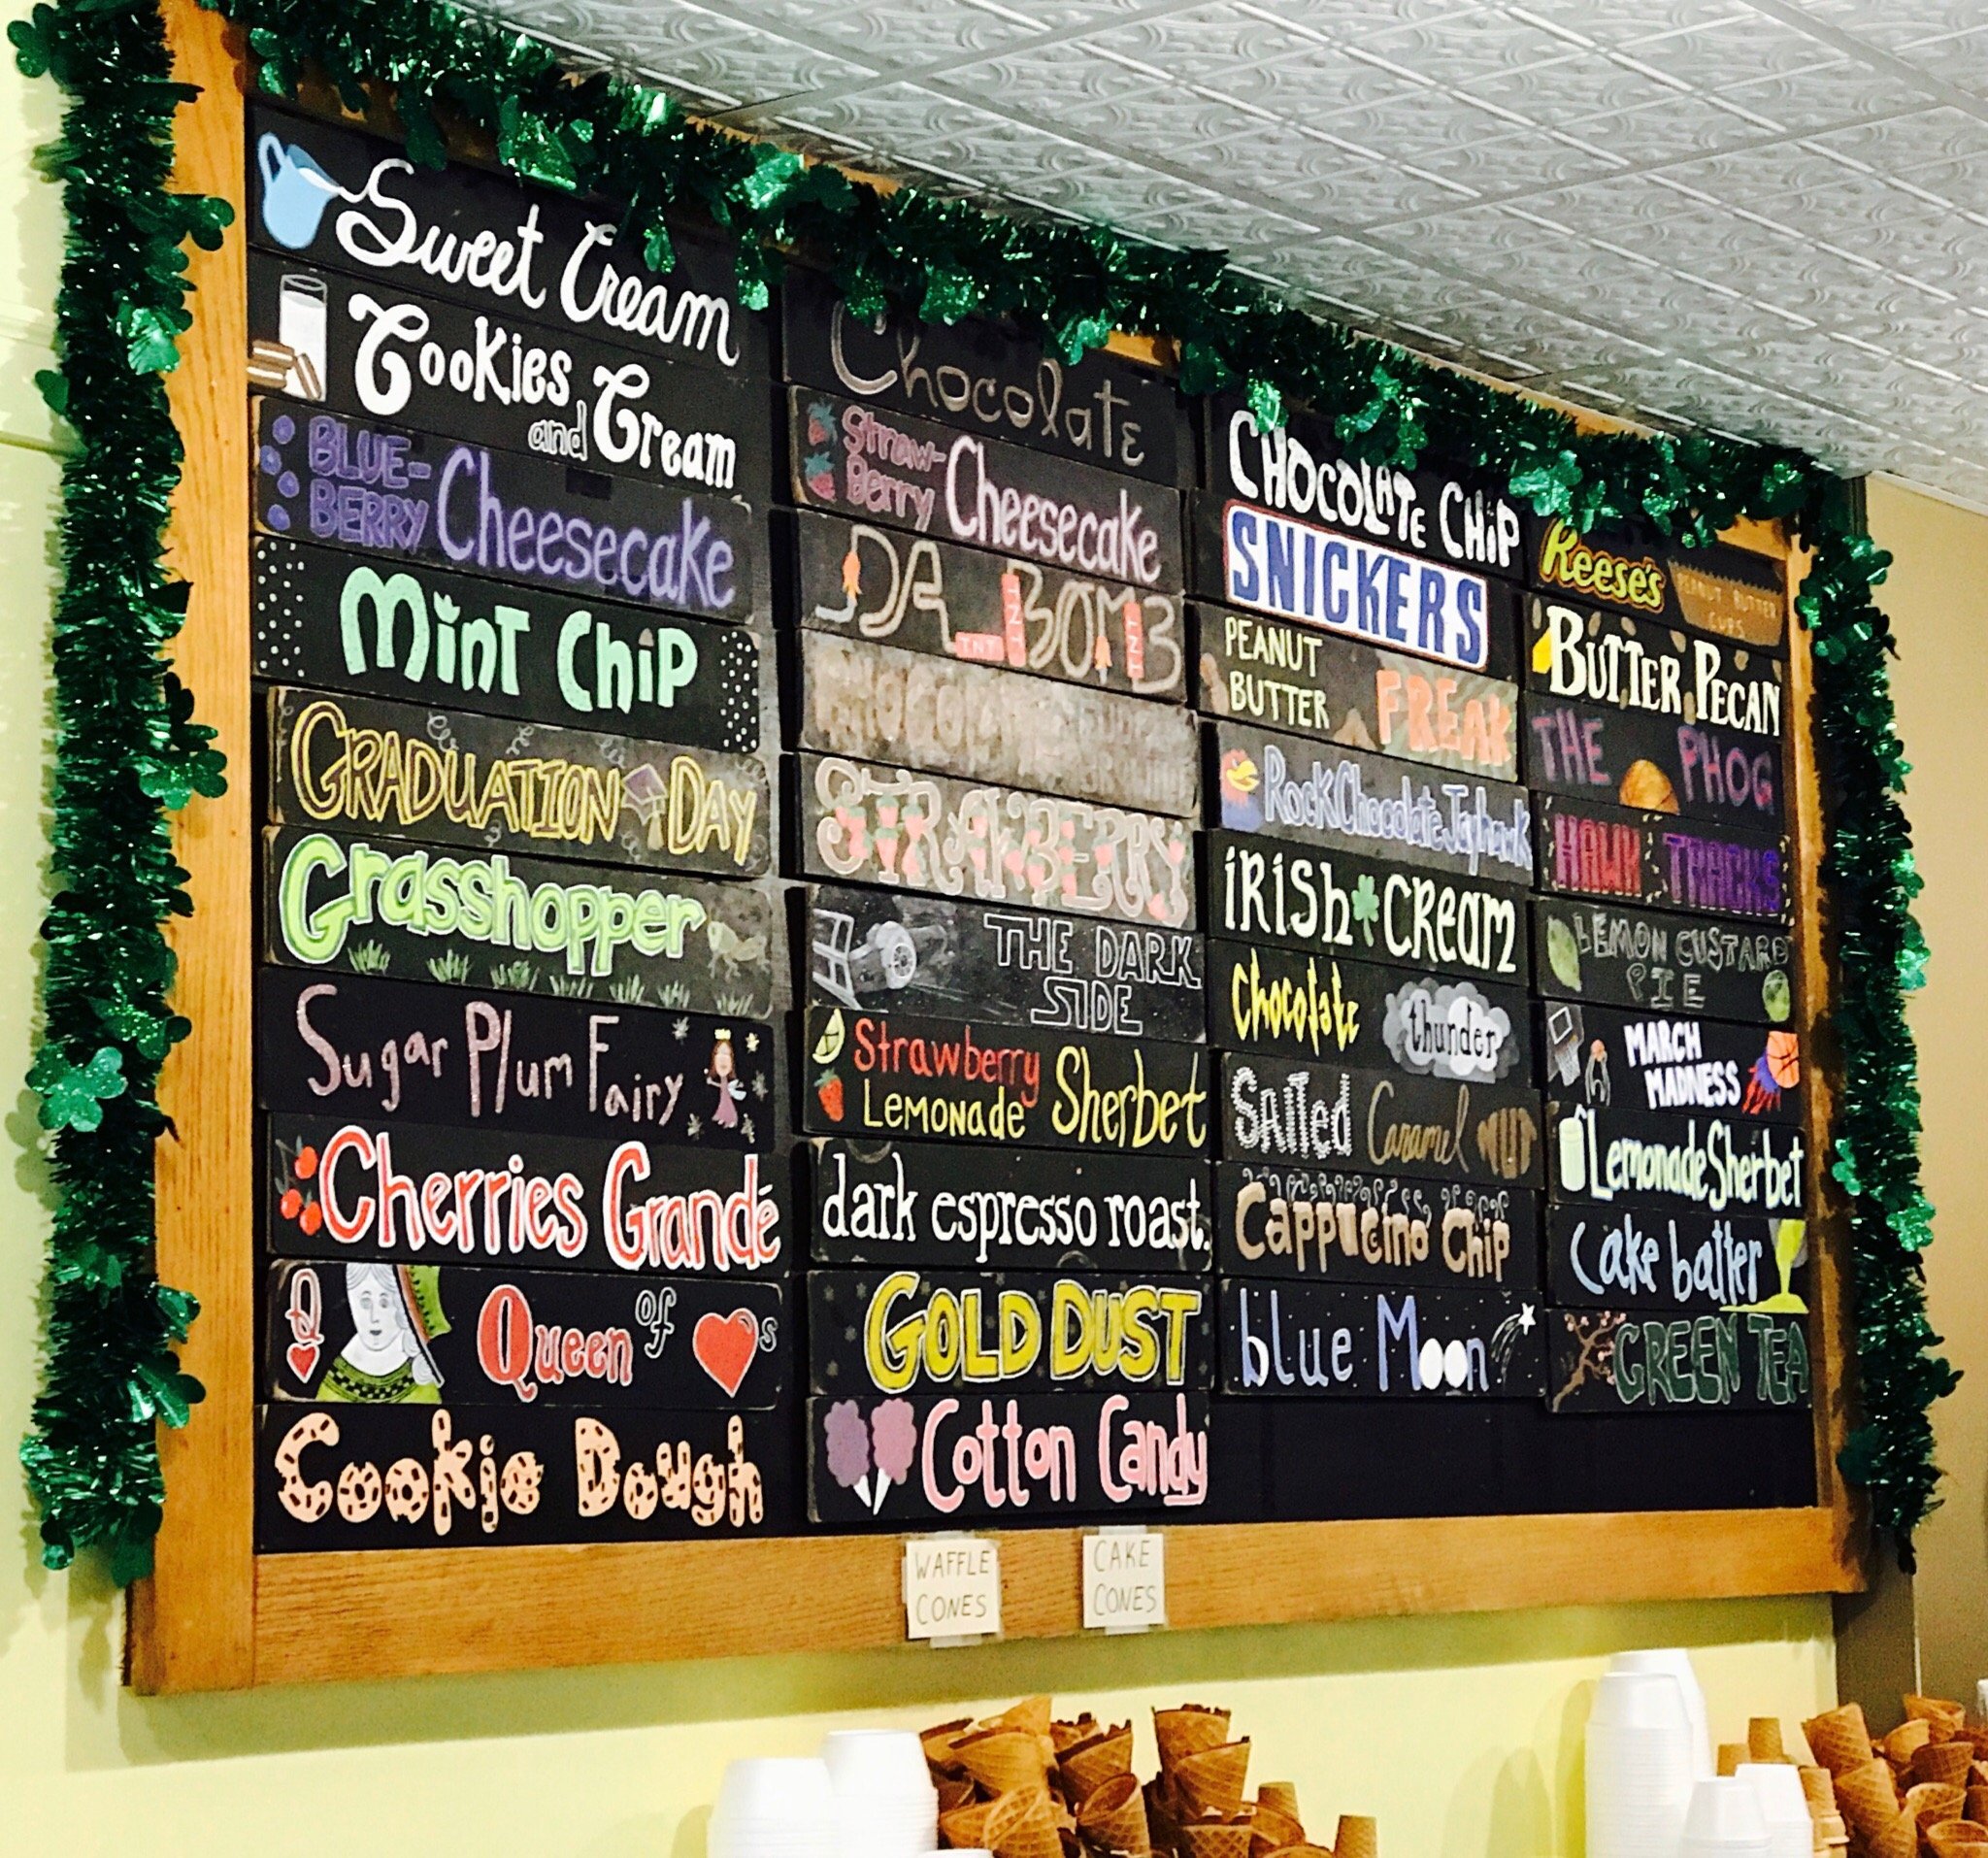 Sweet Cream
Cookies
and Cream
BLUE-
BERRY Cheesecake
Mint Chip
GRADUATION DAY
Grasshopper
Sugar Plum Fairy
Cherries Grandé
Q Queen of s
Cookie Dough
Chocolate
Straw-
Berry Cheesecake
DA BOMB
TNT TNT TNT
STRAWBERRY
THE DARK
SIDE
Strawberry
Lemonade Sherbet
dark espresso roast.
GOLD DUST
Cotton Candy
CHOCOLATE CHIP
SNICKERS
PEANUT
BUTTER FREAK
Rock Chocolate Jayhawk
IRISH CREAM
chocolate thunder
SALTED Caramel NUT
Cappuccino Chip
blue Moon
Reese's PEANUT BUTTER
CUPS
BUTTER PECAN
THE PHOG
HAWK TRACKS
LEMON CUSTARD
PIE
MARCH
MADNESS
Lemonade Sherbet
Cake batter
GREEN TEA
WAFFLE
CONES
CAKE
CONES